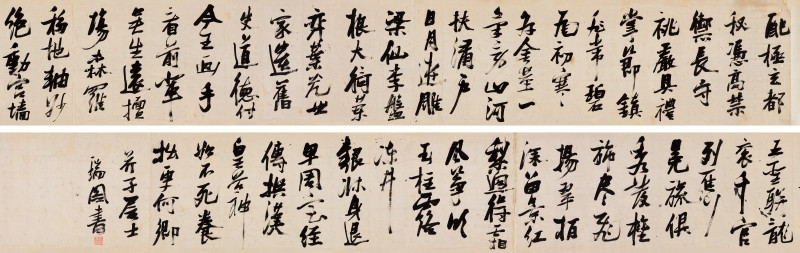 配極玄都
秘憑高禁
籞長守
祧嚴具禮
掌節鎮
非常碧
瓦初寒
外金莖一
氣旁山河
扶繡戶
日月近雕
梁仙李盤
根大猗蘭
奕葉光世
家遺舊
史道德付
今王画手
看前輩
吳生遠擅
場森羅
移地軸妙
絕動宮墻
五聖聯龍
袞千官
列雁行
冕旒俱
秀發旌
旆盡飛
揚翠柏
深留景紅
梨迥得霜
風箏吹
玉柱露
凍井
銀牀身退
卑周室經
傳拱漢
皇谷神
如不死養
拙更何鄉
芥子居士
瑞圖書